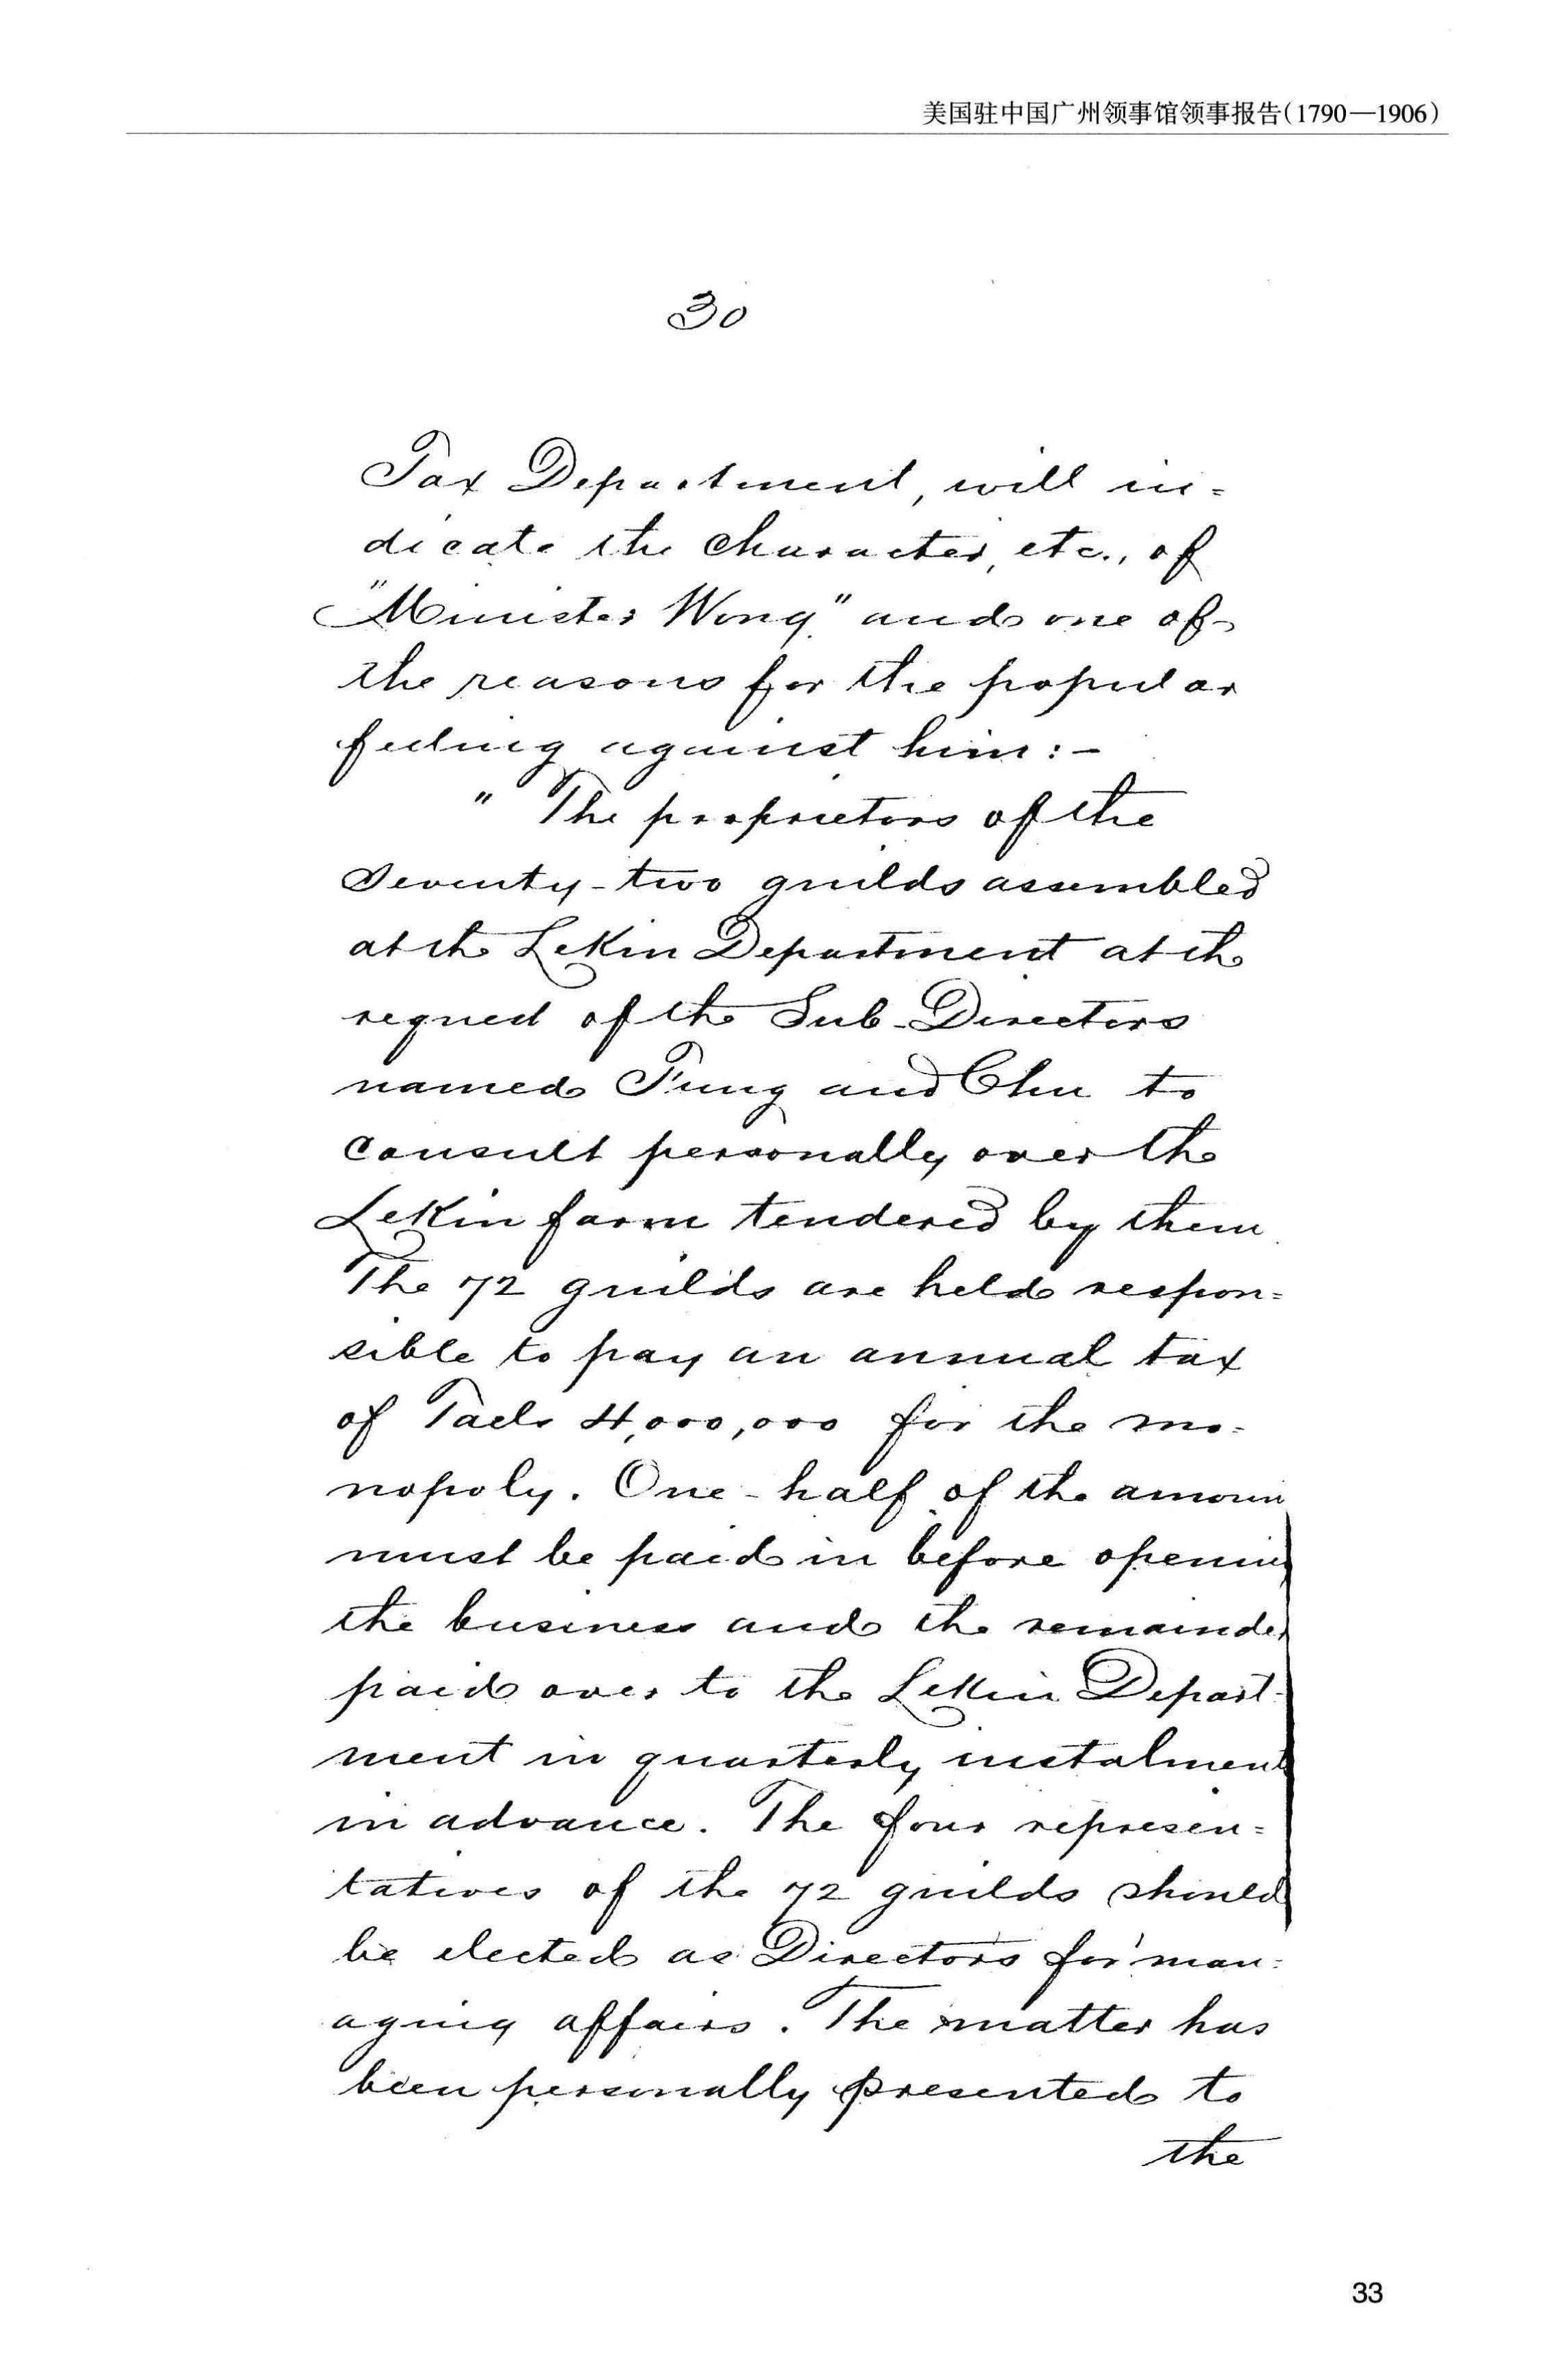 美国驻中国广州领事馆领事报告(1790—1906)
30
Tax Department, will in=
dicate the character, etc., of
"Minister Wong" and one of
the reasons for the popular
feeling against him:-
" The proprietors of the
seventy-two guilds assembled
at the Lekin Department at the
request of the Sub-Directors
named Fung and Chu to
consult personally over the
Lekin farm tendered by them
The 72 guilds are held respon=
sible to pay an annual tax
of Taels 4,000,000 for the mo-
nopoly. One-half of the amoun
must be paid in before openin
the business and the remainder
paid over to the Lekin Depart-
ment in quarterly instalment
in advance. The four represen=
tatives of the 72 guilds should
be elected as Directors for man=
aging affairs. The matter has
been personally presented to
the
33